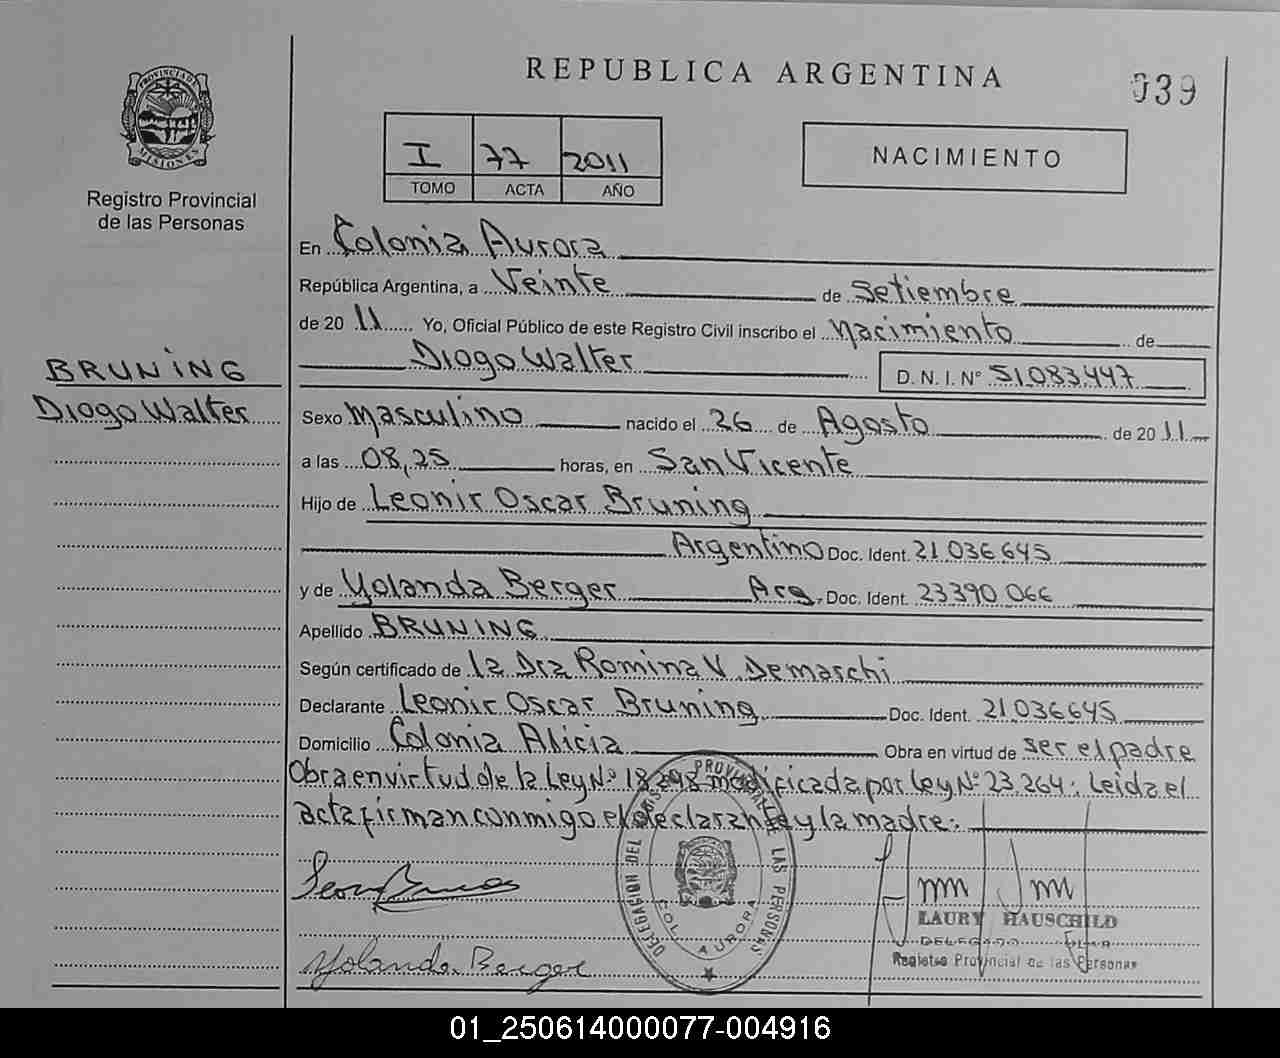 REPUBLICA ARGENTINA
039
PROVINCIA DE
MISIONES
Registro Provincial
de las Personas
I 77 2011
TOMO ACTA AÑO
NACIMIENTO
En Colonia Aurora
República Argentina, a Veinte de Setiembre
de 20 11 Yo, Oficial Público de este Registro Civil inscribo el Nacimiento de
Diogo Walter D.N.I. Nº 51.083.447
BRUNING
Diogo Walter
Sexo Masculino nacido el 26 de Agosto de 20 11
a las 08,25 horas, en San Vicente
Hijo de Leonir Oscar Bruning
Argentino Doc. Ident. 21.036.645
y de Yolanda Berger Arg. Doc. Ident. 23390.066
Apellido BRUNING
Según certificado de la Dra Romina V. Demarchi
Declarante Leonir Oscar Bruning Doc. Ident. 21.036.645
Domicilio Colonia Alicia Obra en virtud de ser el padre
Obra en virtud de la Ley Nº 18.248 modificada por ley Nº 23.264: Leida el
acta firman conmigo el declarante y la madre.
DELEGACION DEL REGISTRO PROVINCIAL DE LAS PERSONAS
COL. AURORA
Yolanda Berger
LAURY HAUSCHILD
Registro Provincial de las Personas
01_250614000077-004916